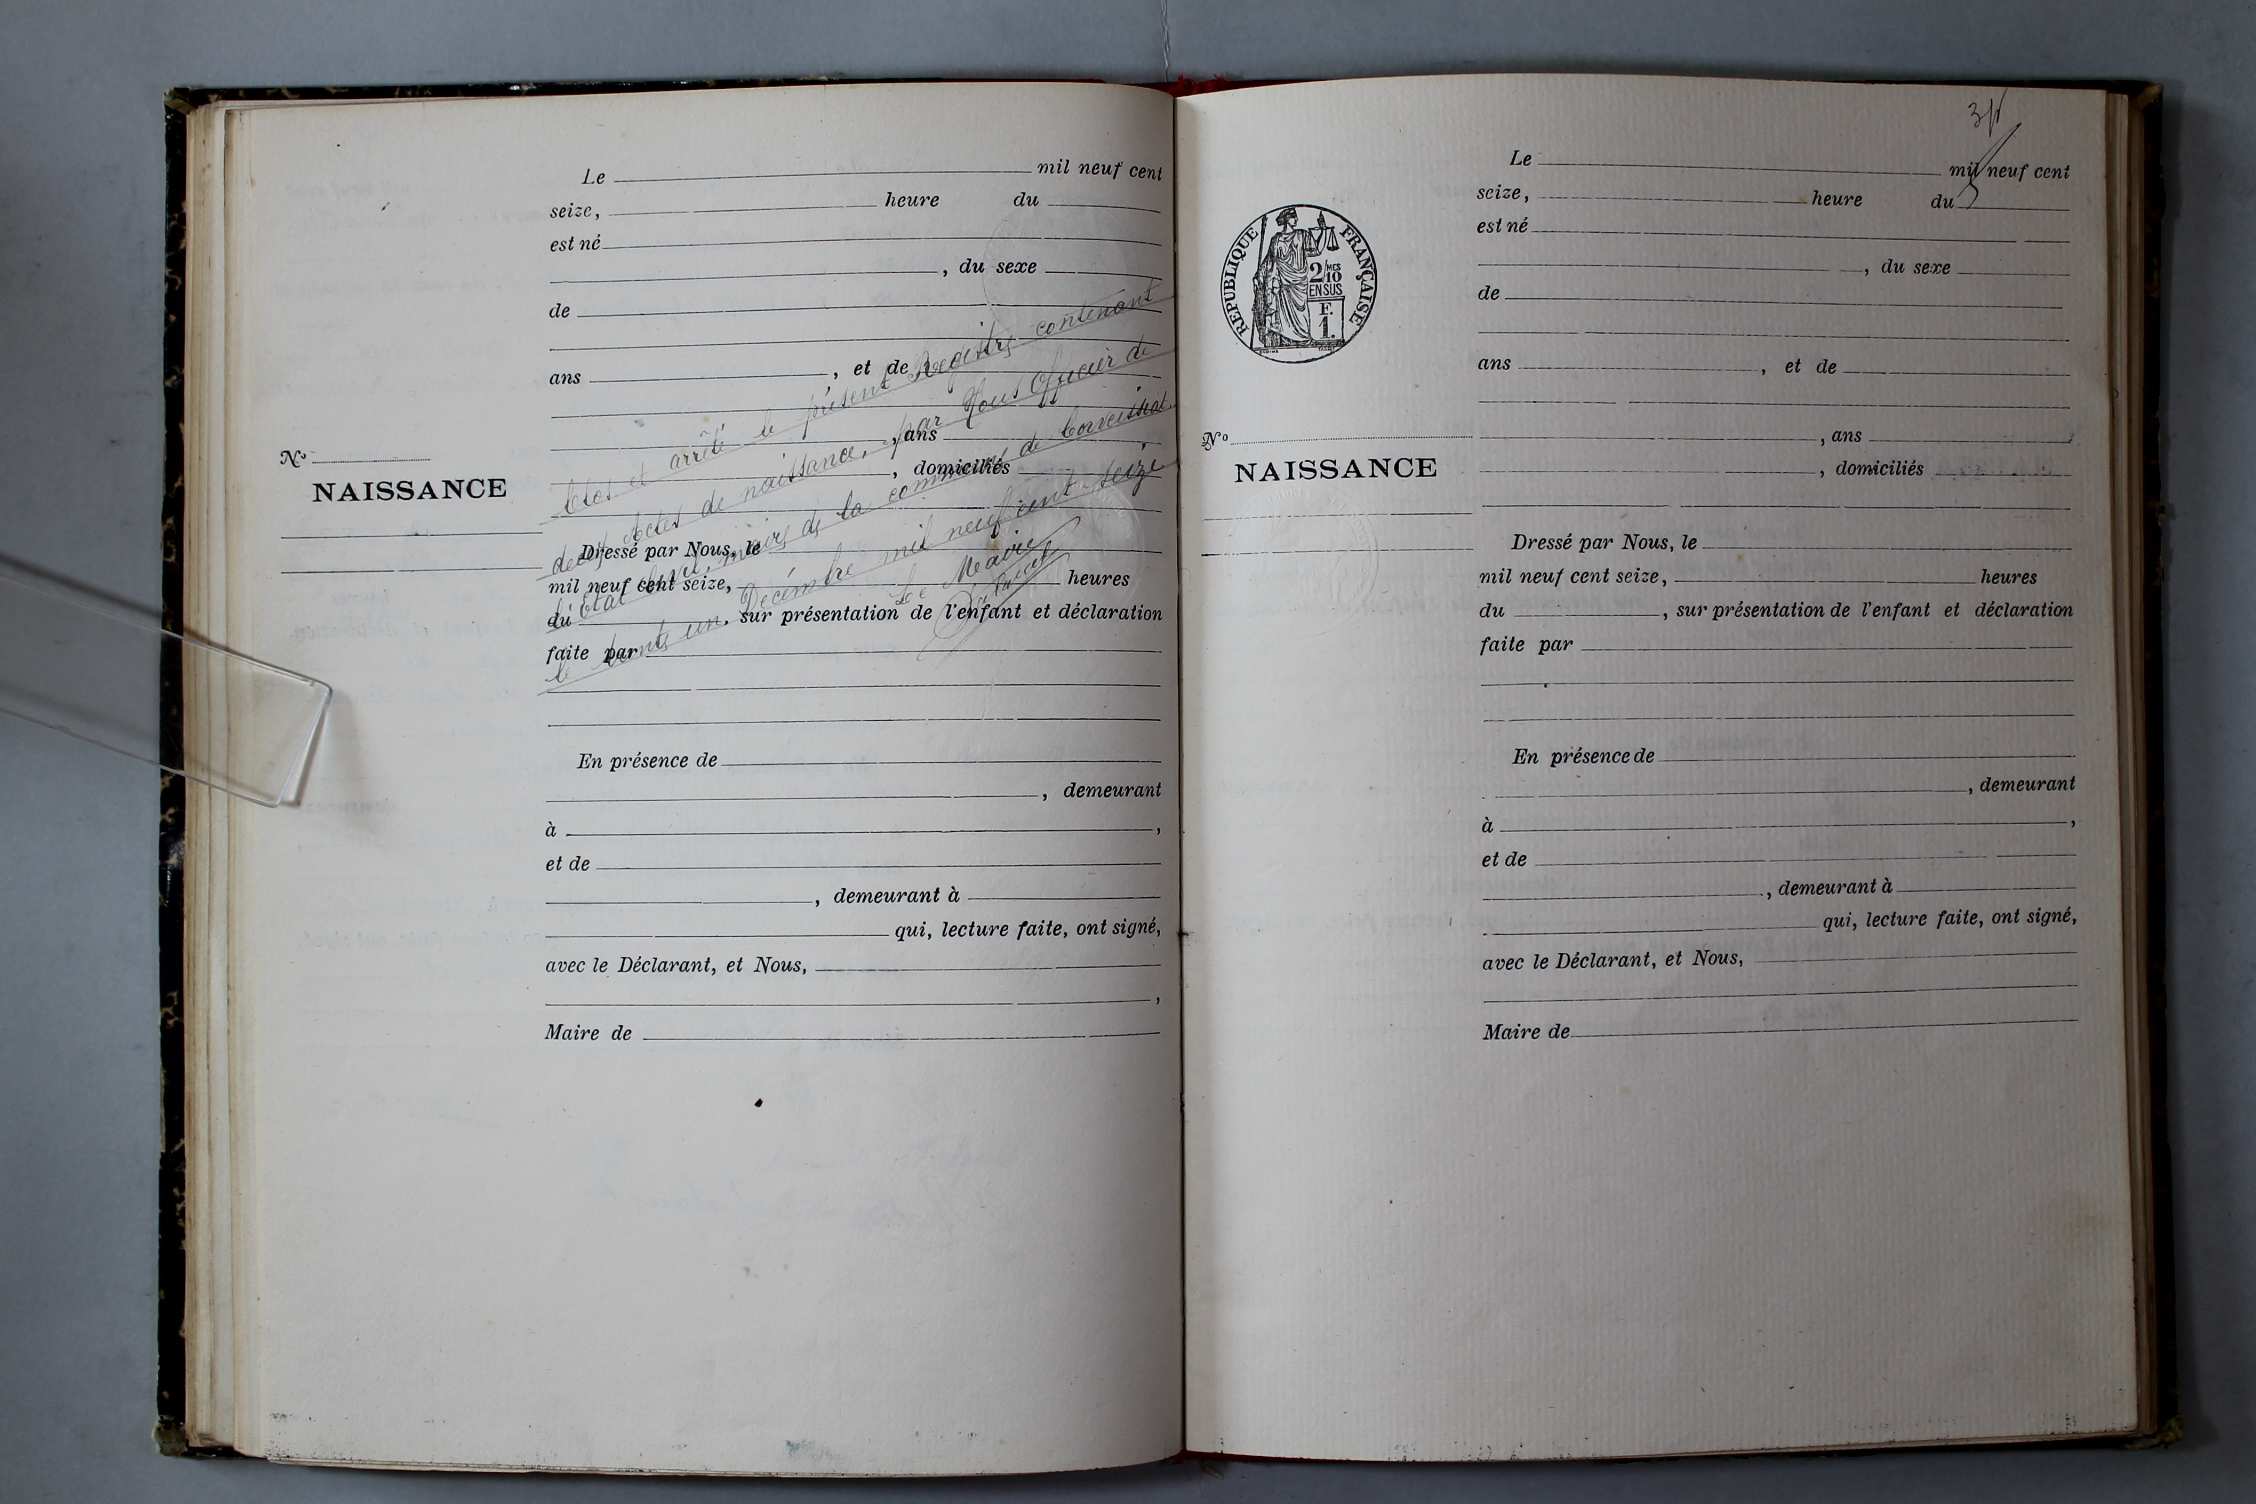 Le mil neuf cent
seize, heure du
est né
, du sexe
de
ans , et de
, ans
, domiciliés
Clos et arrêté le présent Registre contenant
Actes de naissance, par Nous Officier de
l'Etat Civil, maire de la commune de
le trente un Décembre mil neuf cent seize
Le Maire
No
NAISSANCE
Dressé par Nous, le
mil neuf cent seize, heures
du , sur présentation de l'enfant et déclaration
faite par
En présence de
, demeurant
à ,
et de
, demeurant à
qui, lecture faite, ont signé,
avec le Déclarant, et Nous,
,
Maire de
RÉPUBLIQUE FRANÇAISE
2/10 MES
EN SUS
F.
1.
No
NAISSANCE
Le mil neuf cent
seize, heure du
est né
, du sexe
de
ans , et de
, ans
, domiciliés
Dressé par Nous, le
mil neuf cent seize, heures
du , sur présentation de l'enfant et déclaration
faite par
En présence de
, demeurant
à ,
et de
, demeurant à
qui, lecture faite, ont signé,
avec le Déclarant, et Nous,
Maire de